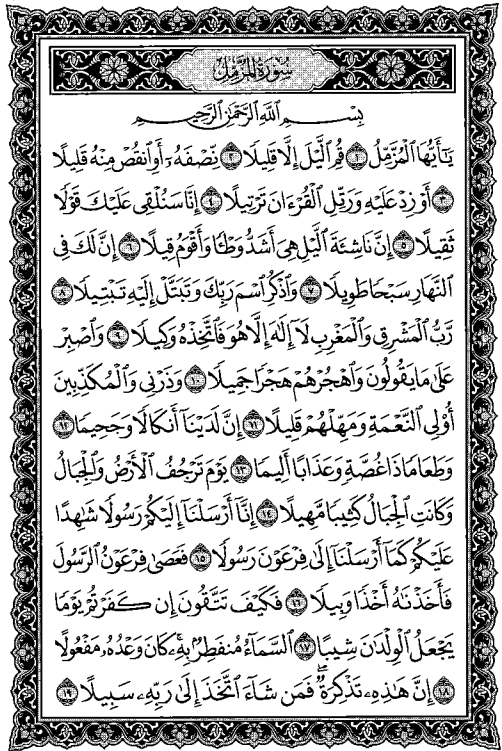 سُورَةُ المُزَّمِّلِ
بِسْمِ ٱللَّهِ ٱلرَّحْمَٰنِ ٱلرَّحِيمِ
يَٰٓأَيُّهَا ٱلْمُزَّمِّلُ ١ قُمِ ٱلَّيْلَ إِلَّا قَلِيلًا ٢ نِّصْفَهُۥٓ أَوِ ٱنقُصْ مِنْهُ قَلِيلًا
٣ أَوْ زِدْ عَلَيْهِ وَرَتِّلِ ٱلْقُرْءَانَ تَرْتِيلًا ٤ إِنَّا سَنُلْقِى عَلَيْكَ قَوْلًا
ثَقِيلًا ٥ إِنَّ نَاشِئَةَ ٱلَّيْلِ هِىَ أَشَدُّ وَطْـًٔا وَأَقْوَمُ قِيلًا ٦ إِنَّ لَكَ فِى
ٱلنَّهَارِ سَبْحًا طَوِيلًا ٧ وَٱذْكُرِ ٱسْمَ رَبِّكَ وَتَبَتَّلْ إِلَيْهِ تَبْتِيلًا ٨
رَّبُّ ٱلْمَشْرِقِ وَٱلْمَغْرِبِ لَآ إِلَٰهَ إِلَّا هُوَ فَٱتَّخِذْهُ وَكِيلًا ٩ وَٱصْبِرْ
عَلَىٰ مَا يَقُولُونَ وَٱهْجُرْهُمْ هَجْرًا جَمِيلًا ١٠ وَذَرْنِى وَٱلْمُكَذِّبِينَ
أُو۟لِى ٱلنَّعْمَةِ وَمَهِّلْهُمْ قَلِيلًا ١١ إِنَّ لَدَيْنَآ أَنكَالًا وَجَحِيمًا ١٢
وَطَعَامًا ذَا غُصَّةٍ وَعَذَابًا أَلِيمًا ١٣ يَوْمَ تَرْجُفُ ٱلْأَرْضُ وَٱلْجِبَالُ
وَكَانَتِ ٱلْجِبَالُ كَثِيبًا مَّهِيلًا ١٤ إِنَّآ أَرْسَلْنَآ إِلَيْكُمْ رَسُولًا شَٰهِدًا
عَلَيْكُمْ كَمَآ أَرْسَلْنَآ إِلَىٰ فِرْعَوْنَ رَسُولًا ١٥ فَعَصَىٰ فِرْعَوْنُ ٱلرَّسُولَ
فَأَخَذْنَٰهُ أَخْذًا وَبِيلًا ١٦ فَكَيْفَ تَتَّقُونَ إِن كَفَرْتُمْ يَوْمًا
يَجْعَلُ ٱلْوِلْدَٰنَ شِيبًا ١٧ ٱلسَّمَآءُ مُنفَطِرٌۢ بِهِۦ ۚ كَانَ وَعْدُهُۥ مَفْعُولًا
١٨ إِنَّ هَٰذِهِۦ تَذْكِرَةٌ ۖ فَمَن شَآءَ ٱتَّخَذَ إِلَىٰ رَبِّهِۦ سَبِيلًا ١٩